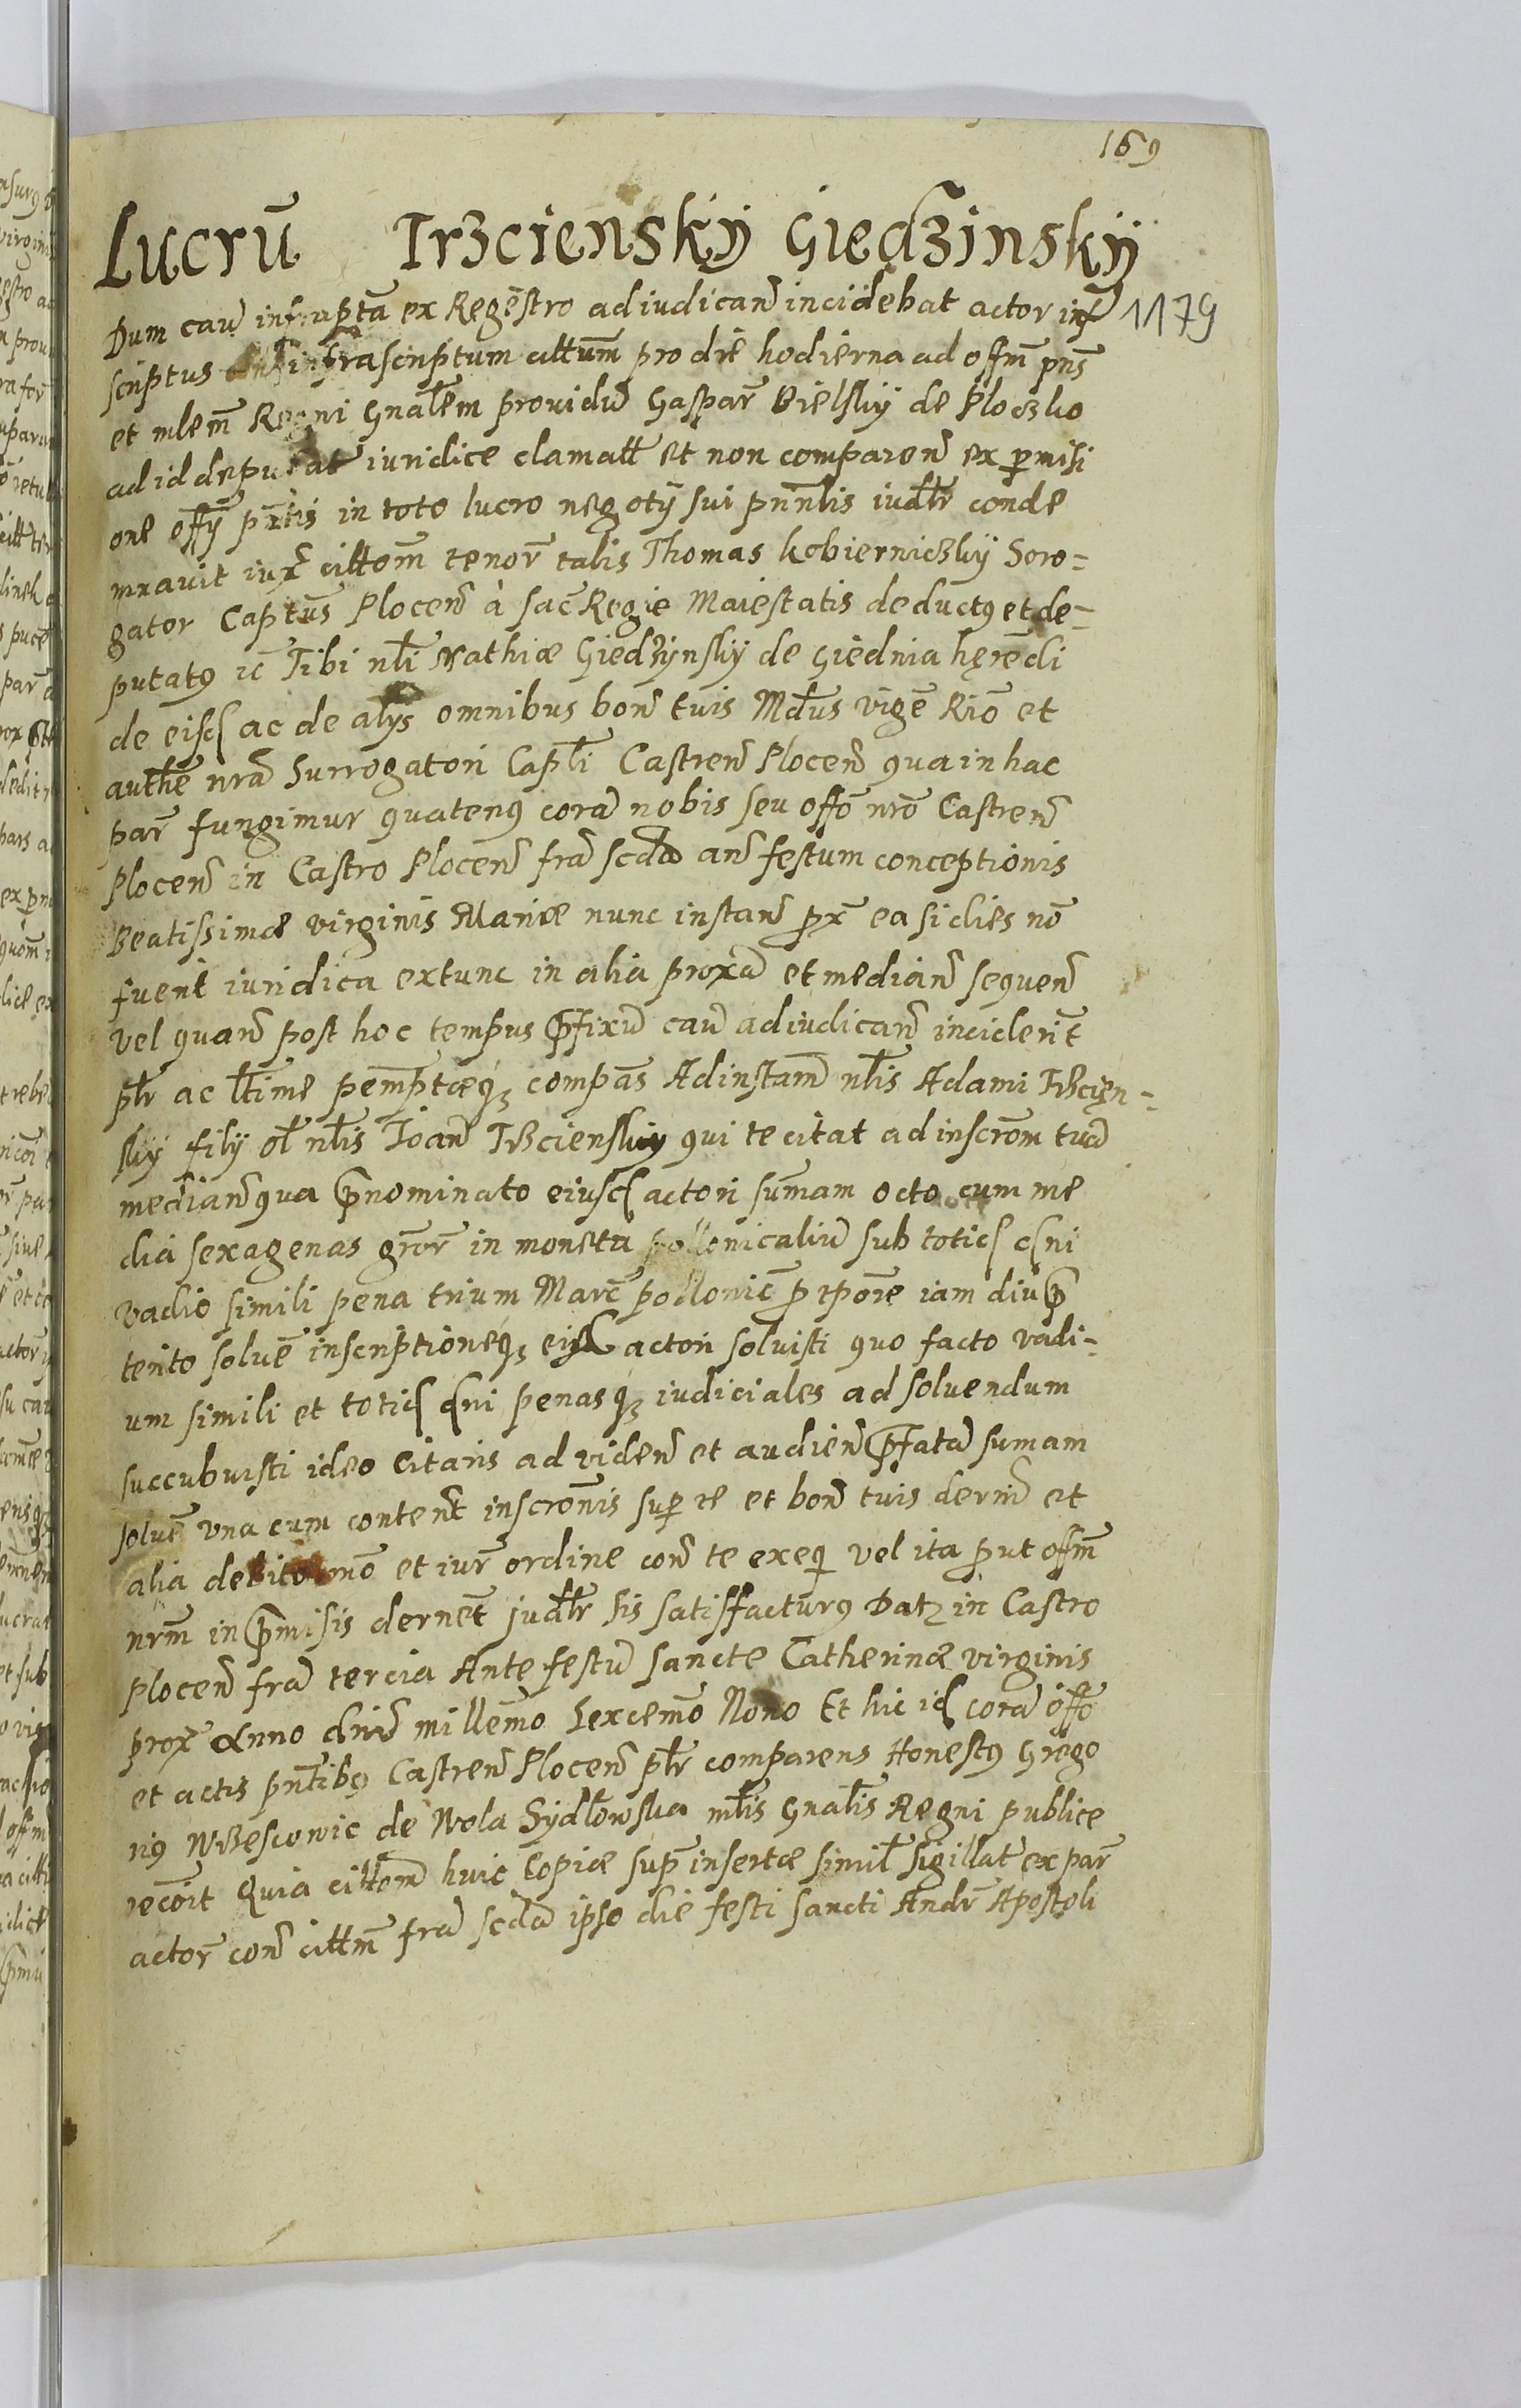 169
Lucrū Trzciensky Giedzinsky
1179
Dum cau͞ infrapta͞ ex Regestro adiudican͞ incidebat actor inf͞
scriptus infrascriptum cittum͞ pro die hodierna ad offm͞ pns͞
et mlem͞ Regni Gnalem͞ prouidu͞ Gaspar͞ Bielsky de Ploczko
ad id deputat͞ iuridice clamatt͞ et non comparen͞ ex p͞misi
one offy͞ pn͞tis in toto lucro negoty sui pnn͞lis iudltr͞ conde
mnauit iux͞ cittom͞ tenor͞ talis Thomas Kobierniczky Soro-
gator Captus͞ Plocen͞ à sac͞ Regie Maiestatis deductꝯ et de-
putatꝯ ic͞ Tibi nli͞ Mathiæ Giedzynsky de Giednia hęredi
de eisd͞ ac de alys omnibus bon͞ tuis Mdus͞ vige͞ Rio͞ et
authe͞ nra͞ Surrogatori Capli͞ Castren͞ Plocen͞ qua in hac
par͞ fungimur quatenꝯ cora͞ nobis seu offo͞ nro͞ Castren͞
Plocen͞ in Castro Plocen͞ fra͞ scda͞ an͞ festum conceptionis
Beatissimæ virginis Mariæ nunc instan͞ prx͞ ea si dies no͞
fuerit iuridica extunc in alia proxa͞ et median͞ sequen͞
vel quan͞ post hoc tempus p͞fixu͞ cau͞ adiudican͞ inciderit͞
pltr͞ ac ltime͞ pemptæqꝫ compas͞ Ad instam͞ nlis͞ Adami Trzcien-
sky fily ol͞ nlis͞ Joan͞ Trzciensky qui te citat ad inscrom͞ tua͞
median͞ qua p͞nominato eiusd͞ actori sumam͞ octo cum me
dia sexagenas gror͞ in moneta pollonicaliu͞ sub totid͞ dni͞
vadio simili pena trium Marc͞ pollonic͞ p͞ tpore͞ iam diu p͞
terito soluē inscriptioneqꝫ eisd͞ actori soluisti quo facto vadi-
um simili et totid͞ dni͞ penasqꝫ iudiciales ad soluendum
succubuisti ideo Citaris ad viden͞ et audien͞ p͞fata͞ sumam
soluē vna cum content͞ inscronis͞ sup͞ te et bon͞ tuis derni͞ et
alia debito mo͞ et iur͞ ordine con͞ te exeqi vel ita p͞ut offm͞
nrm͞ in p͞misis dernet͞ judltr͞ sis satisffacturꝯ Datꝫ in Castro
Plocen͞ fra͞ tercia Ante festu͞ sancte Catherinæ virginis
prox͞ Anno dni͞ millemo͞ Sexcemo͞ Nono Et hic id͞ cora͞ offo͞
et actis pntibꝯ͞ Castren͞ Plocen͞ pltr͞ comparens Honestꝯ Grego
riꝯ Wrzescowic de Wola Sydlowska mlis͞ Gnalis͞ Regni publice
recoit͞ Quia cittom͞ huic Copiæ sup͞ insertæ simil͞ sigillat͞ ex par͞
actor͞ con͞ cittm͞ fra͞ scda͞ ipso die festi sancti Andr͞ Apostoli